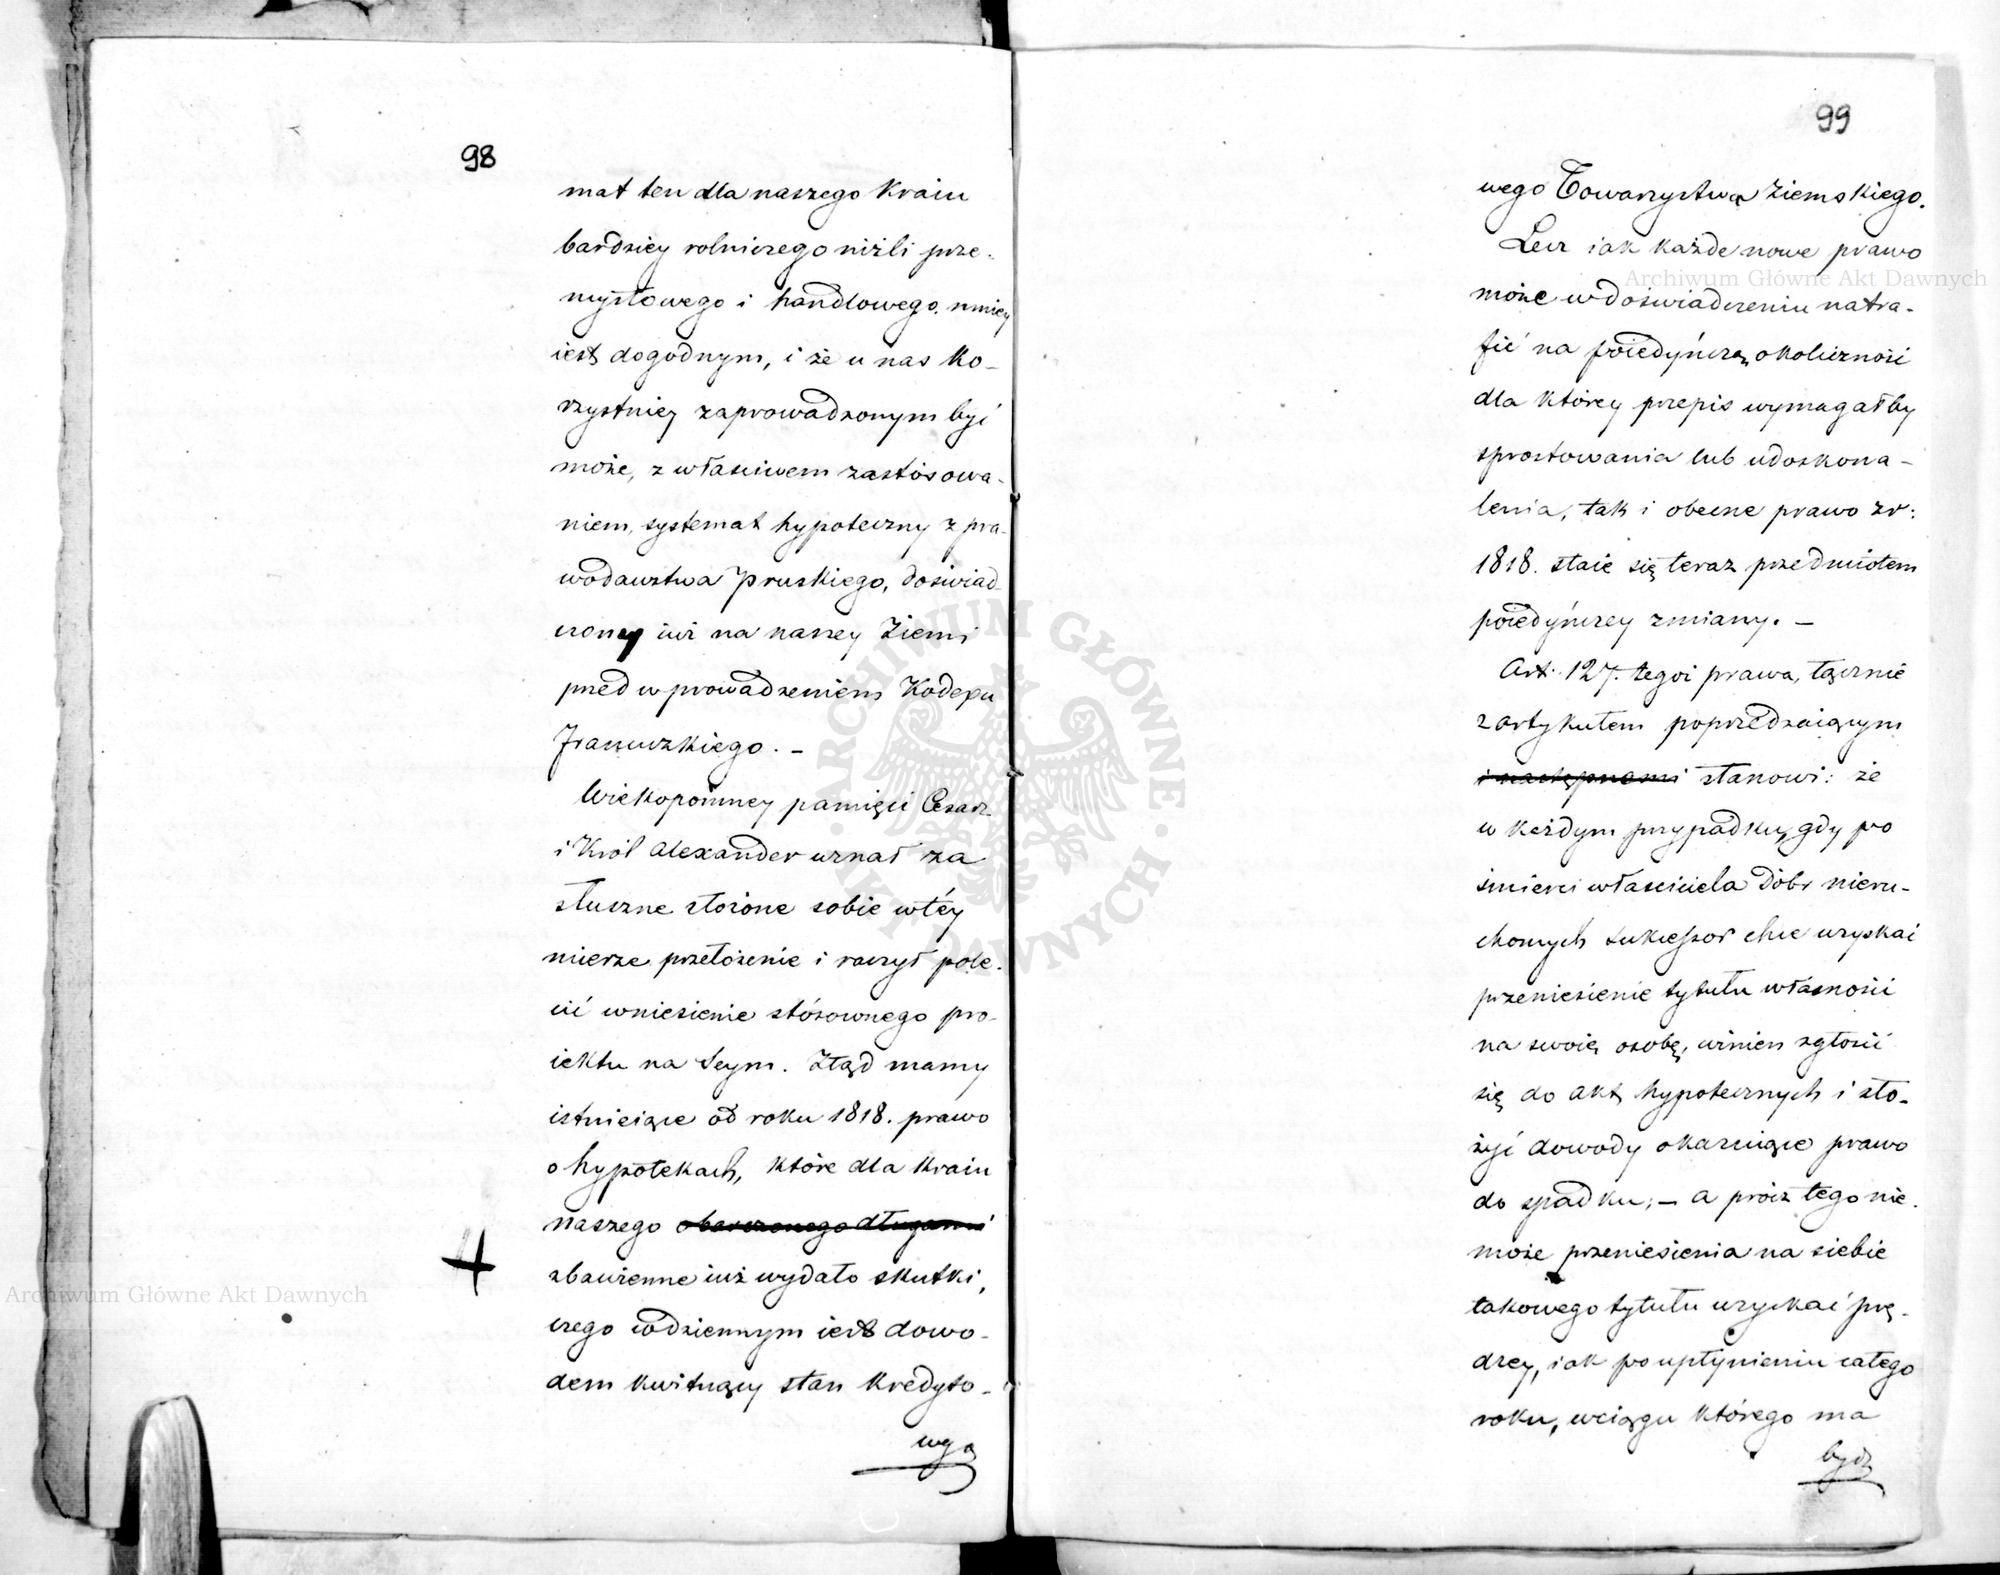 98
mat ten dla naszego Kraiu
bardziey rolniczego niżli prze-
mysłowego i handlowego. mniey
iest dogodnym, i że u nas ko-
rzystniey zaprowadzonym być
może, z właściwem zastósowa-
niem, systemat hypoteczny z pra-
wodawstwa Pruskiego, doświad-
czony iuż na naszey Ziemi
przed wprowadzeniem Kodexu
Francuzkiego. –
Wiekopomney pamięci Cesarz
i Król Alexander uznał za
słuszne złożone sobie w téy
mierze przełożenie i raczył pole-
cić wniesienie stósownego pro-
iektu na Seym. Ztąd mamy
istnieiące od roku 1818. prawo
o hypotekach, które dla Kraiu
naszego obarczonego długami
zbawienne iuż wydało skutki,
czego codziennym iest dowo-
dem kwitnący stan Kredyto-
wgo
99
wego Towarzystwa Ziemskiego.
Lecz iak każde nowe prawo
może w doświadczeniu natra-
fić na poiedyńczą okoliczność
dla którey przepis wymagałby
sprostowania lub udoskona-
lenia, tak i obecne prawo z r:
1818. staie się teraz przedmiotem
poiedyńczey zmiany. –
Art. 127. tegoż prawa, łącznie
z artykułem poprzedzaiącym
i następnemi stanowi: że
w każdym przypadku, gdy po
śmierci właściciela dóbr nieru-
chomych sukcessor chce uzyskać
przeniesienie tytułu własności
na swoię osobę, winien zgłosić
się do akt hypotecznych i zło-
żyć dowody okazuiące prawo
do spadku; – a prócz tego nie
może przeniesienia na siebie
takowego tytułu uzyskać prę-
dzey, iak po upłynieniu całego
roku, w ciągu którego ma
bydz
Archiwum Główne Akt Dawnych
Archiwum Główne Akt Dawnych
ARCHIWUM GŁÓWNE
AKT DAWNYCH